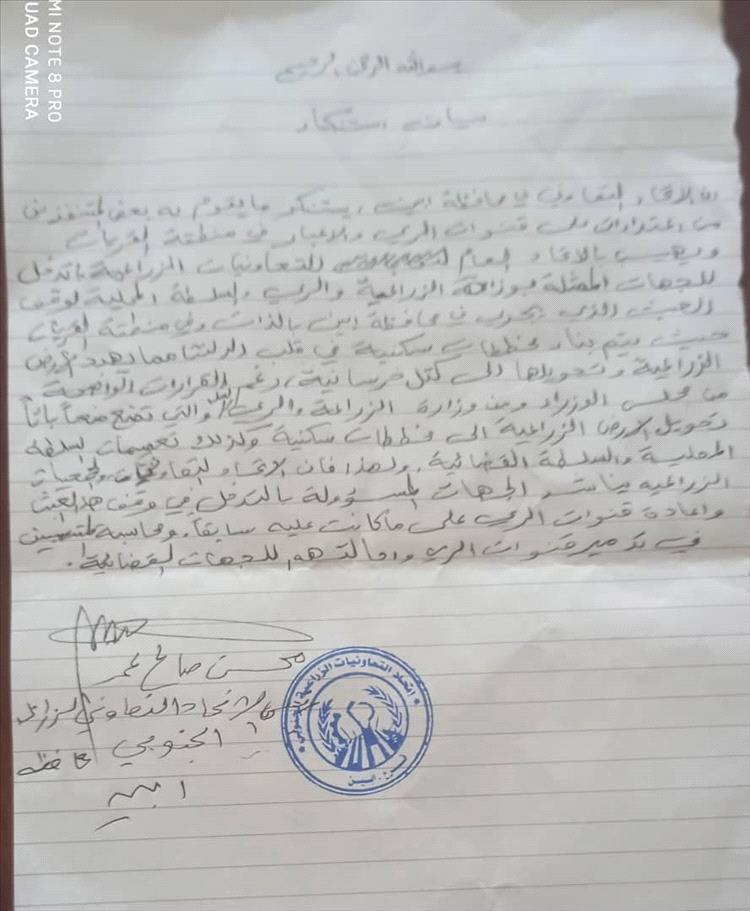 MI NOTE 8 PRO
QUAD CAMERA
بسم الله الرحمن الرحيم
بيان استنكار
ان الاتحاد التعاوني في محافظة ابين يستنكر ما يقوم به بعض المتنفذين
من اعتداءات على قنوات الري والاعبار في منطقة القريات
ويهيب بالاتحاد العام للتعاونيات الزراعية بالتدخل
للجهات الممثلة بوزارة الزراعية والري والسلطة المحلية لوقف
العبث الذي يجري في محافظة ابين بالذات وفي منطقة القريات
حيث يتم بناء مخططات سكنية في قلب الدلتا مما يهدد الارض
الزراعية وتحويلها الى كتل خرسانية، رغم القرارات الواضحة
من مجلس الوزراء ومن وزارة الزراعة والري والتي تمنع منعاً باتاً
تحويل الارض الزراعية الى مخططات سكنية وكذلك تعميمات السلطه
المحلية والسلطة القضائية. ولهذا فان الاتحاد التعاوني والجمعيات
الزراعيه يناشد الجهات المسؤولة بالتدخل في وقف هذا العبث
واعادة قنوات الري على ما كانت عليه سابقاً. ومحاسبة المتسببين
في تدمير قنوات الري واحالتهم للجهات القضائية.
محسن صالح عمر
الاتحاد التعاوني الزراعي
الجنوبي محافظه
ابين
اتحاد التعاونيات الزراعية الجنوبي
ابين